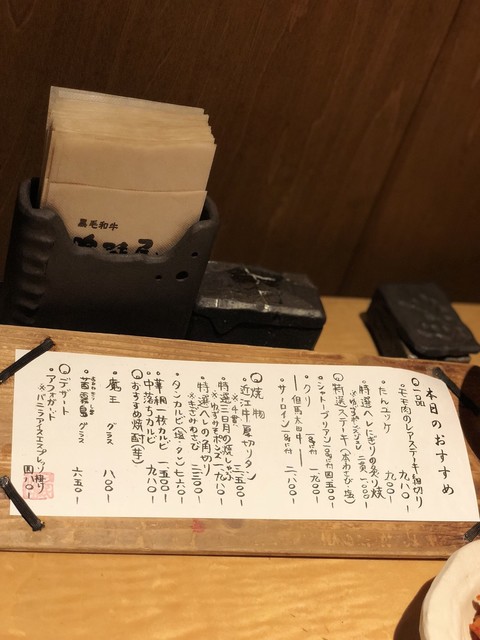 黒毛和牛
本日のおすすめ
○一品
・モモ肉のレアステーキ細切り 九八〇-
・たんユッケ 九〇〇-
・特選ヘレにぎりの炙り焼 二貫 一〇〇〇-
※ゆずポン
○特選ステーキ(本わさび・塩)
・シャトーブリアン一〇〇g付 四五〇〇-
・クリ 一〇〇g付
但馬太田牛
・サーロイン一〇〇g付 二八〇〇-
○焼物
・近江牛厚切りタン 三五〇〇-
※4貫
・特選三日月の焼しゃぶ 一九八〇-
※ゆずみそポンズ
・特選ヘレの角切り 三三〇〇-
※きざみわさび
・タンカルビ(塩・タレ) 七六〇-
・華細一枚カルビ 一五〇〇-
・中落ちカルビ 九八〇-
○おすすめ焼酎(芋)
・魔王 グラス 八〇〇-
・茜霧島 グラス 六五〇-
○デザート
・アフォガード 四八〇-
※バニラアイスエスプレッソ掛け